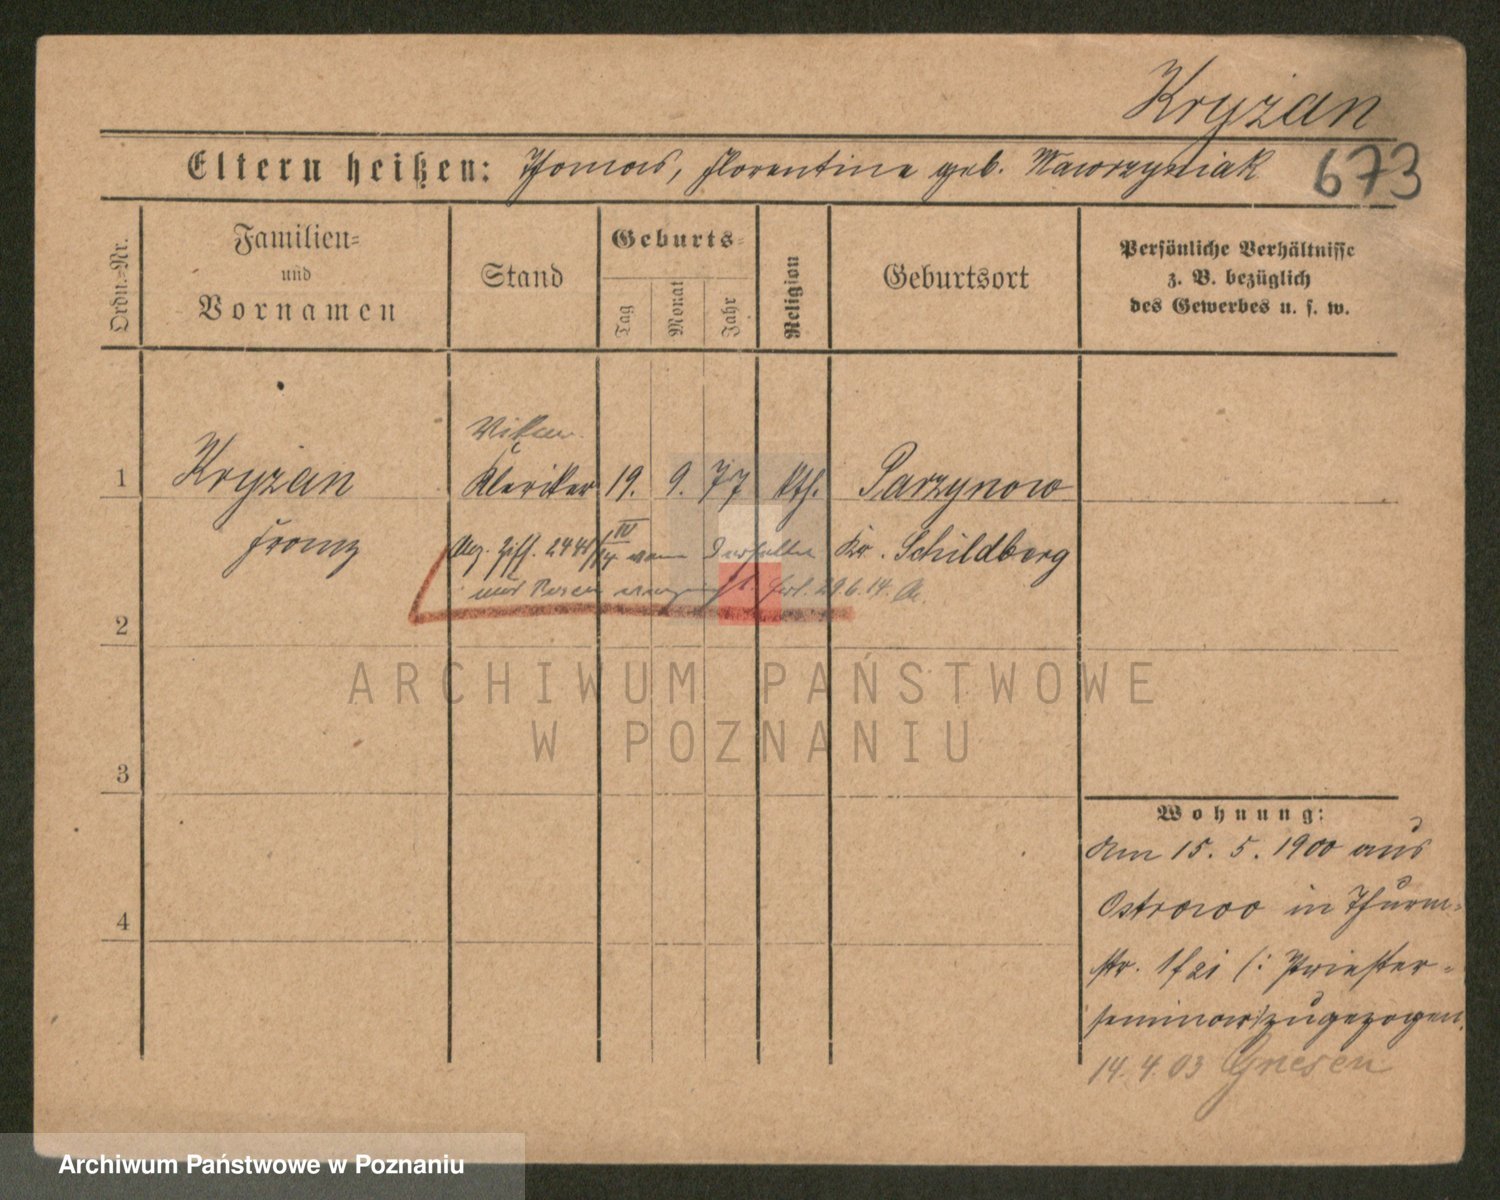 Kryżan
Eltern heißen: Thomas, Florentine geb. Nawrzyniak 673
Ordn.-Nr.
Familien-
und
Vornamen
Stand
Geburts-
Tag
Monat
Jahr
Religion
Geburtsort
Persönliche Verhältnisse
z. B. bezüglich
des Gewerbes u. s. w.
Vikar
1 Kryżan Kleriker 19. 9. 77 kth. Parzynow
Franz
Kr. Schildberg
Ziff. 2441 IV/14 vom
nur Posen 29.6.14.
2
3
4
Wohnung:
Am 15. 5. 1900 aus
Ostrowo in Thurm-
str. 1 bei (: Priester-
seminar) zugezogen.
14. 4. 03 Gnesen
ARCHIWUM PAŃSTWOWE
W POZNANIU
Archiwum Państwowe w Poznaniu